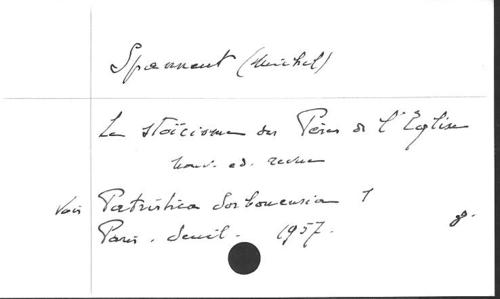 Spanneut (Michel)
Le stoïcisme des Pères de l'Église
nouv. ed. revue
Voir Patristica Sorbonensia 1
Paris. Seuil. 1957.